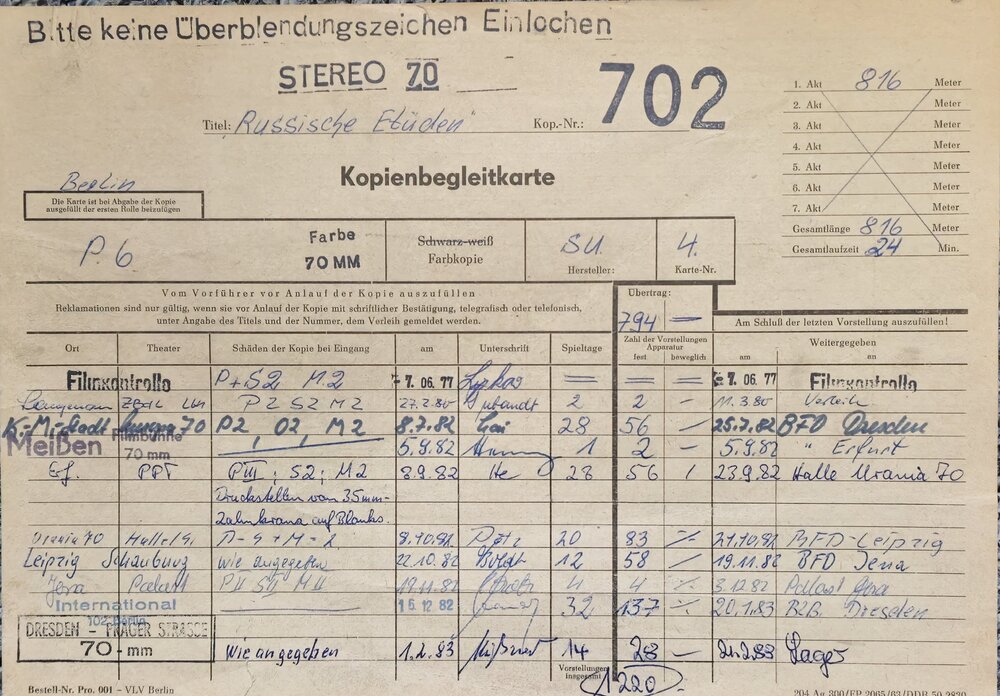 Bitte keine Überblendungszeichen Einlochen
STEREO 70
702
Titel: „Russische Etüden" Kop.-Nr.:
1. Akt 816 Meter
2. Akt Meter
3. Akt Meter
4. Akt Meter
5. Akt Meter
6. Akt Meter
7. Akt Meter
Gesamtlänge 816 Meter
Gesamtlaufzeit 24 Min.
Kopienbegleitkarte
Berlin
Die Karte ist bei Abgabe der Kopie
ausgefüllt der ersten Rolle beizufügen
P. 6
Farbe
70 MM
Schwarz-weiß
Farbkopie
SU.
Hersteller:
4.
Karte-Nr.
Vom Vorführer vor Anlauf der Kopie auszufüllen
Reklamationen sind nur gültig, wenn sie vor Anlauf der Kopie mit schriftlicher Bestätigung, telegrafisch oder telefonisch,
unter Angabe des Titels und der Nummer, dem Verleih gemeldet werden.
Übertrag:
794 —
Am Schluß der letzten Vorstellung auszufüllen!
Ort Theater Schäden der Kopie bei Eingang am Unterschrift Spieltage
Zahl der Vorstellungen
Apparatur
fest beweglich
Weitergegeben
am an
Filmkontrolle P+S2 M.2 - 7. 06. 77 = = = - 7. 06. 77 Filmkontrolle
P2 S2 M2 27.2.80 2 2 - 11.3.80 Verleih
K.-M.-Stadt 70 P2, O2, M2 8.7.82 28 56 - 25.7.82 BFD Dresden
Meißen Filmbühne
70 mm
5.9.82 1 2 - " Erfurt
Erf. PPT PIII; S2; M2 8.9.82 He 28 56 / 23.9.82 Halle Urania 70
Druckstellen von 35mm-
Zahnkranz auf Blanks.
Urania 70 Halle 8.10.82 20 83 21.10.82 BFD-Leipzig
Leipzig Schauburg wie angegeben 22.10.82 12 58 - 19.11.82 BFD Jena
Palast PII SII MII 19.11.82 4 4 3.12.82 Palast Gera
International
102 Berlin
15.12.82 32 137 20.1.83 Dresden
DRESDEN – PRAGER STRASSE
70-mm
wie angegeben 1.2.83 14 28 - Lager
Vorstellungen
insgesamt
1220
Bestell-Nr. Pro. 001 – VLV Berlin